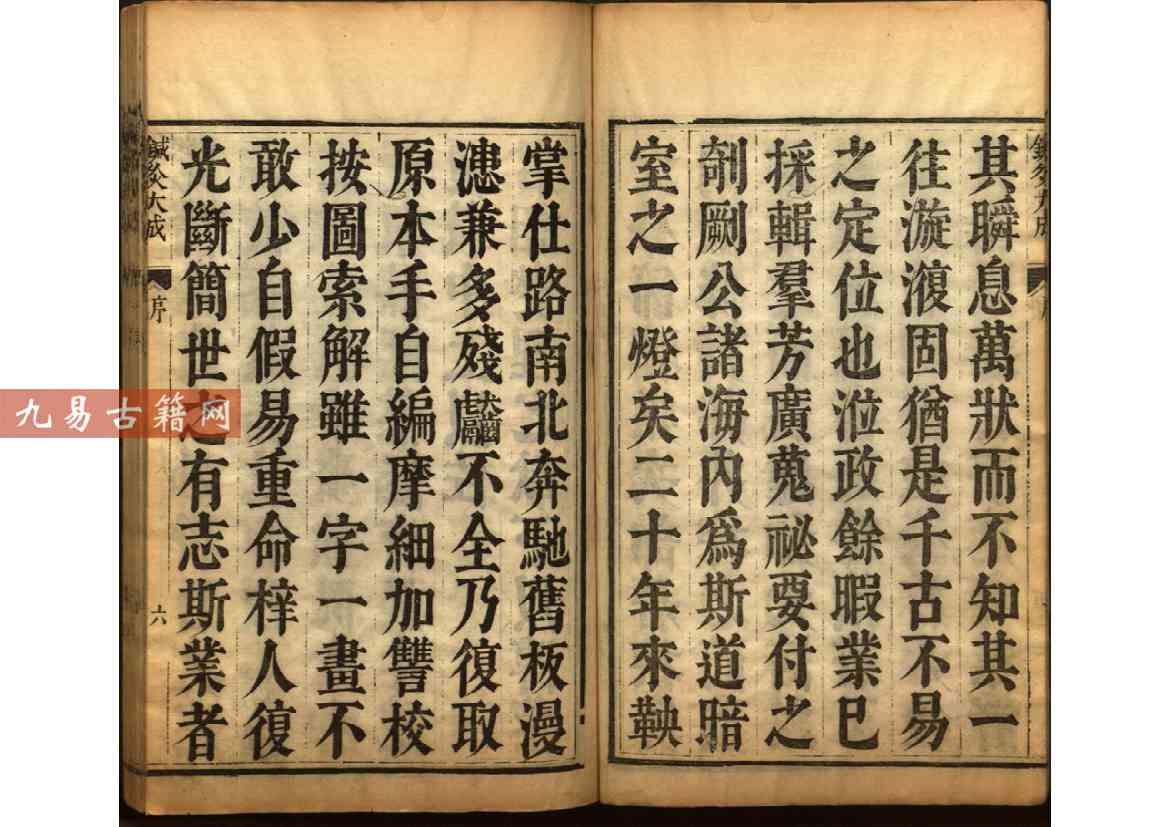 其瞬息萬狀而不知其一
往漩澓固猶是千古不易
之定位也涖政餘暇業已
採輯羣芳廣蒐祕要付之
剞劂公諸海內爲斯道暗
室之一燈矣二十年來鞅
掌仕路南北奔馳舊板漫
漶兼多殘齾不全乃復取
原本手自編摩細加讐校
按圖索解雖一字一畫不
敢少自假易重命梓人復
光斷簡世之有志斯業者
鍼灸大成 序 六
九易古籍网